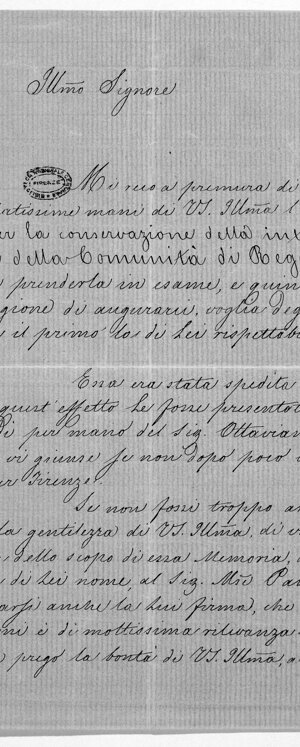 Illmo Signore
FIRENZE
Mi reco a premura di
rtissime mani di VS. Illma l
er la conservazione della int
della Comunità di Reg
prenderla in esame, e quin
gione di augurarci, voglia deg
il primo lo di Lei rispettab
Essa era stata spedita
quest'effetto Le fosse presentat
Di per mano del Sig. Ottavian
vi giunse se non dopo poco
er Firenze.
Se non fossi troppo ar
la gentilezza di VS. Illma, di v
dello scopo di essa Memoria,
di Lei nome, al Sig. Pan
arsi anche la Lui firma, che
ni è di moltissima rilevanza
prego la bontà di VS. Illma, a